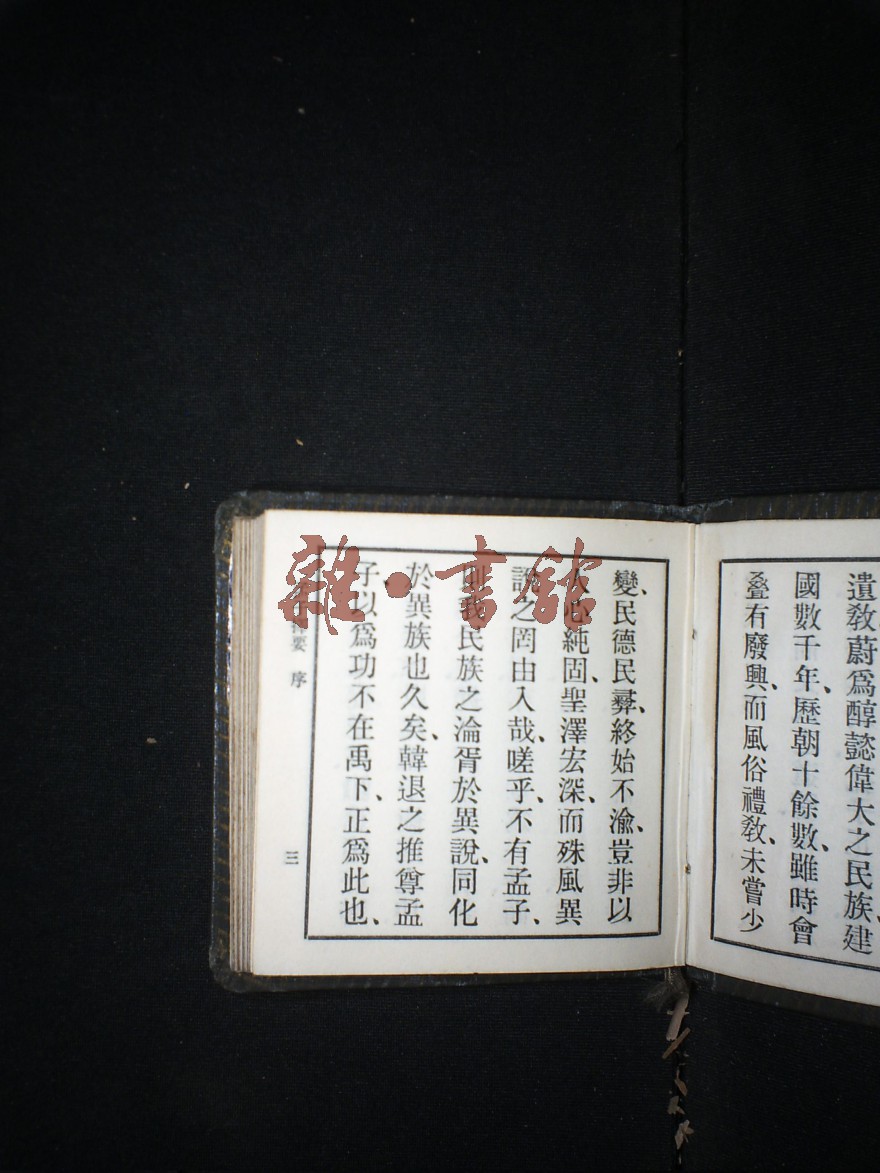 遺敎蔚爲醇懿偉大之民族、建
國數千年、歷朝十餘數、雖時會
叠有廢興、而風俗禮敎、未嘗少
變、民德民彛、終始不渝、豈非以
人心純固、聖澤宏深、而殊風異
說之罔由入哉、嗟乎、不有孟子、
則我民族之淪胥於異說、同化
於異族也久矣、韓退之推尊孟
子、以爲功不在禹下、正爲此也、
要 序
三
雜·書館